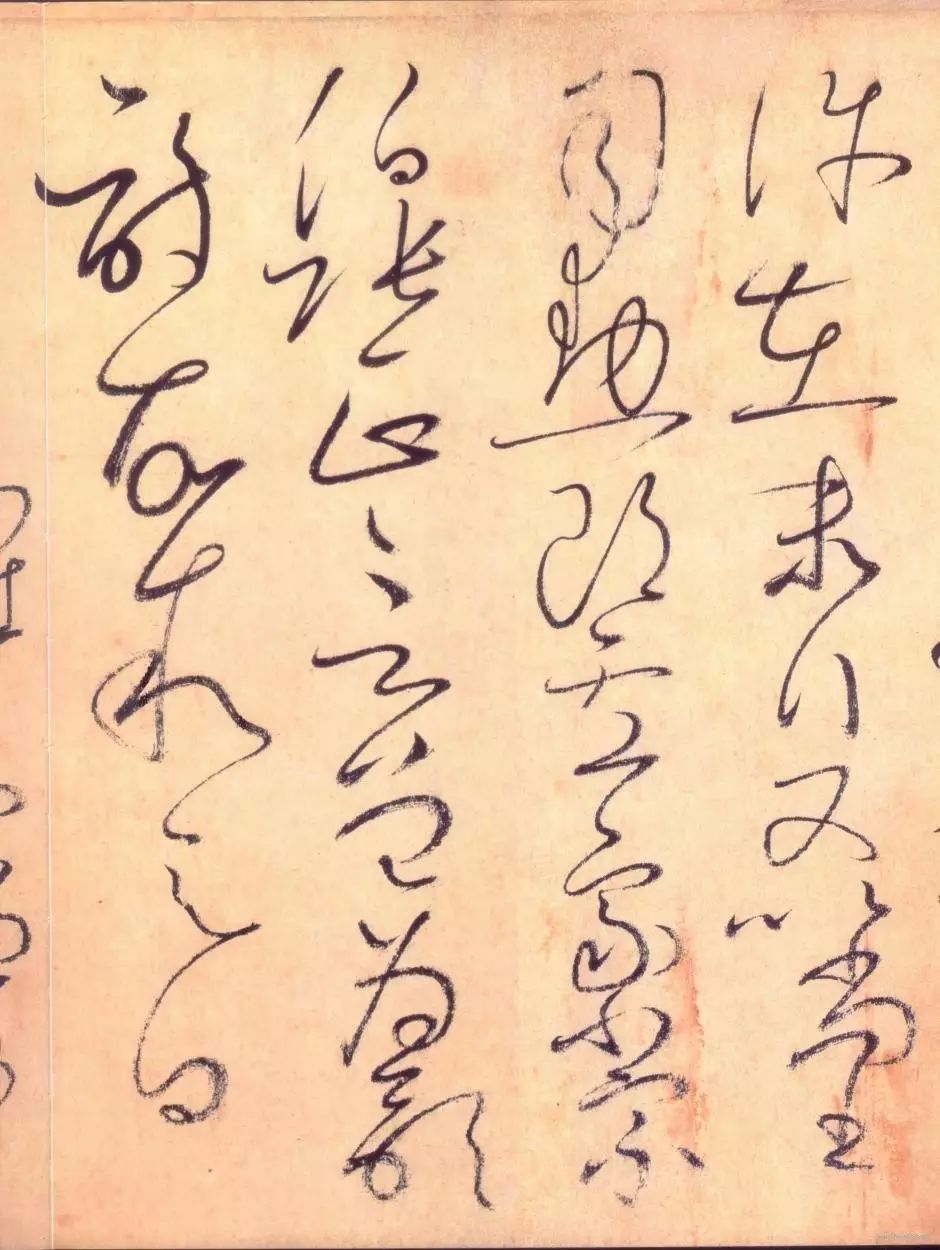 許在末行又以尚書
司勳郎盧象小宗
伯張正言曾為歌
詩故敘之曰